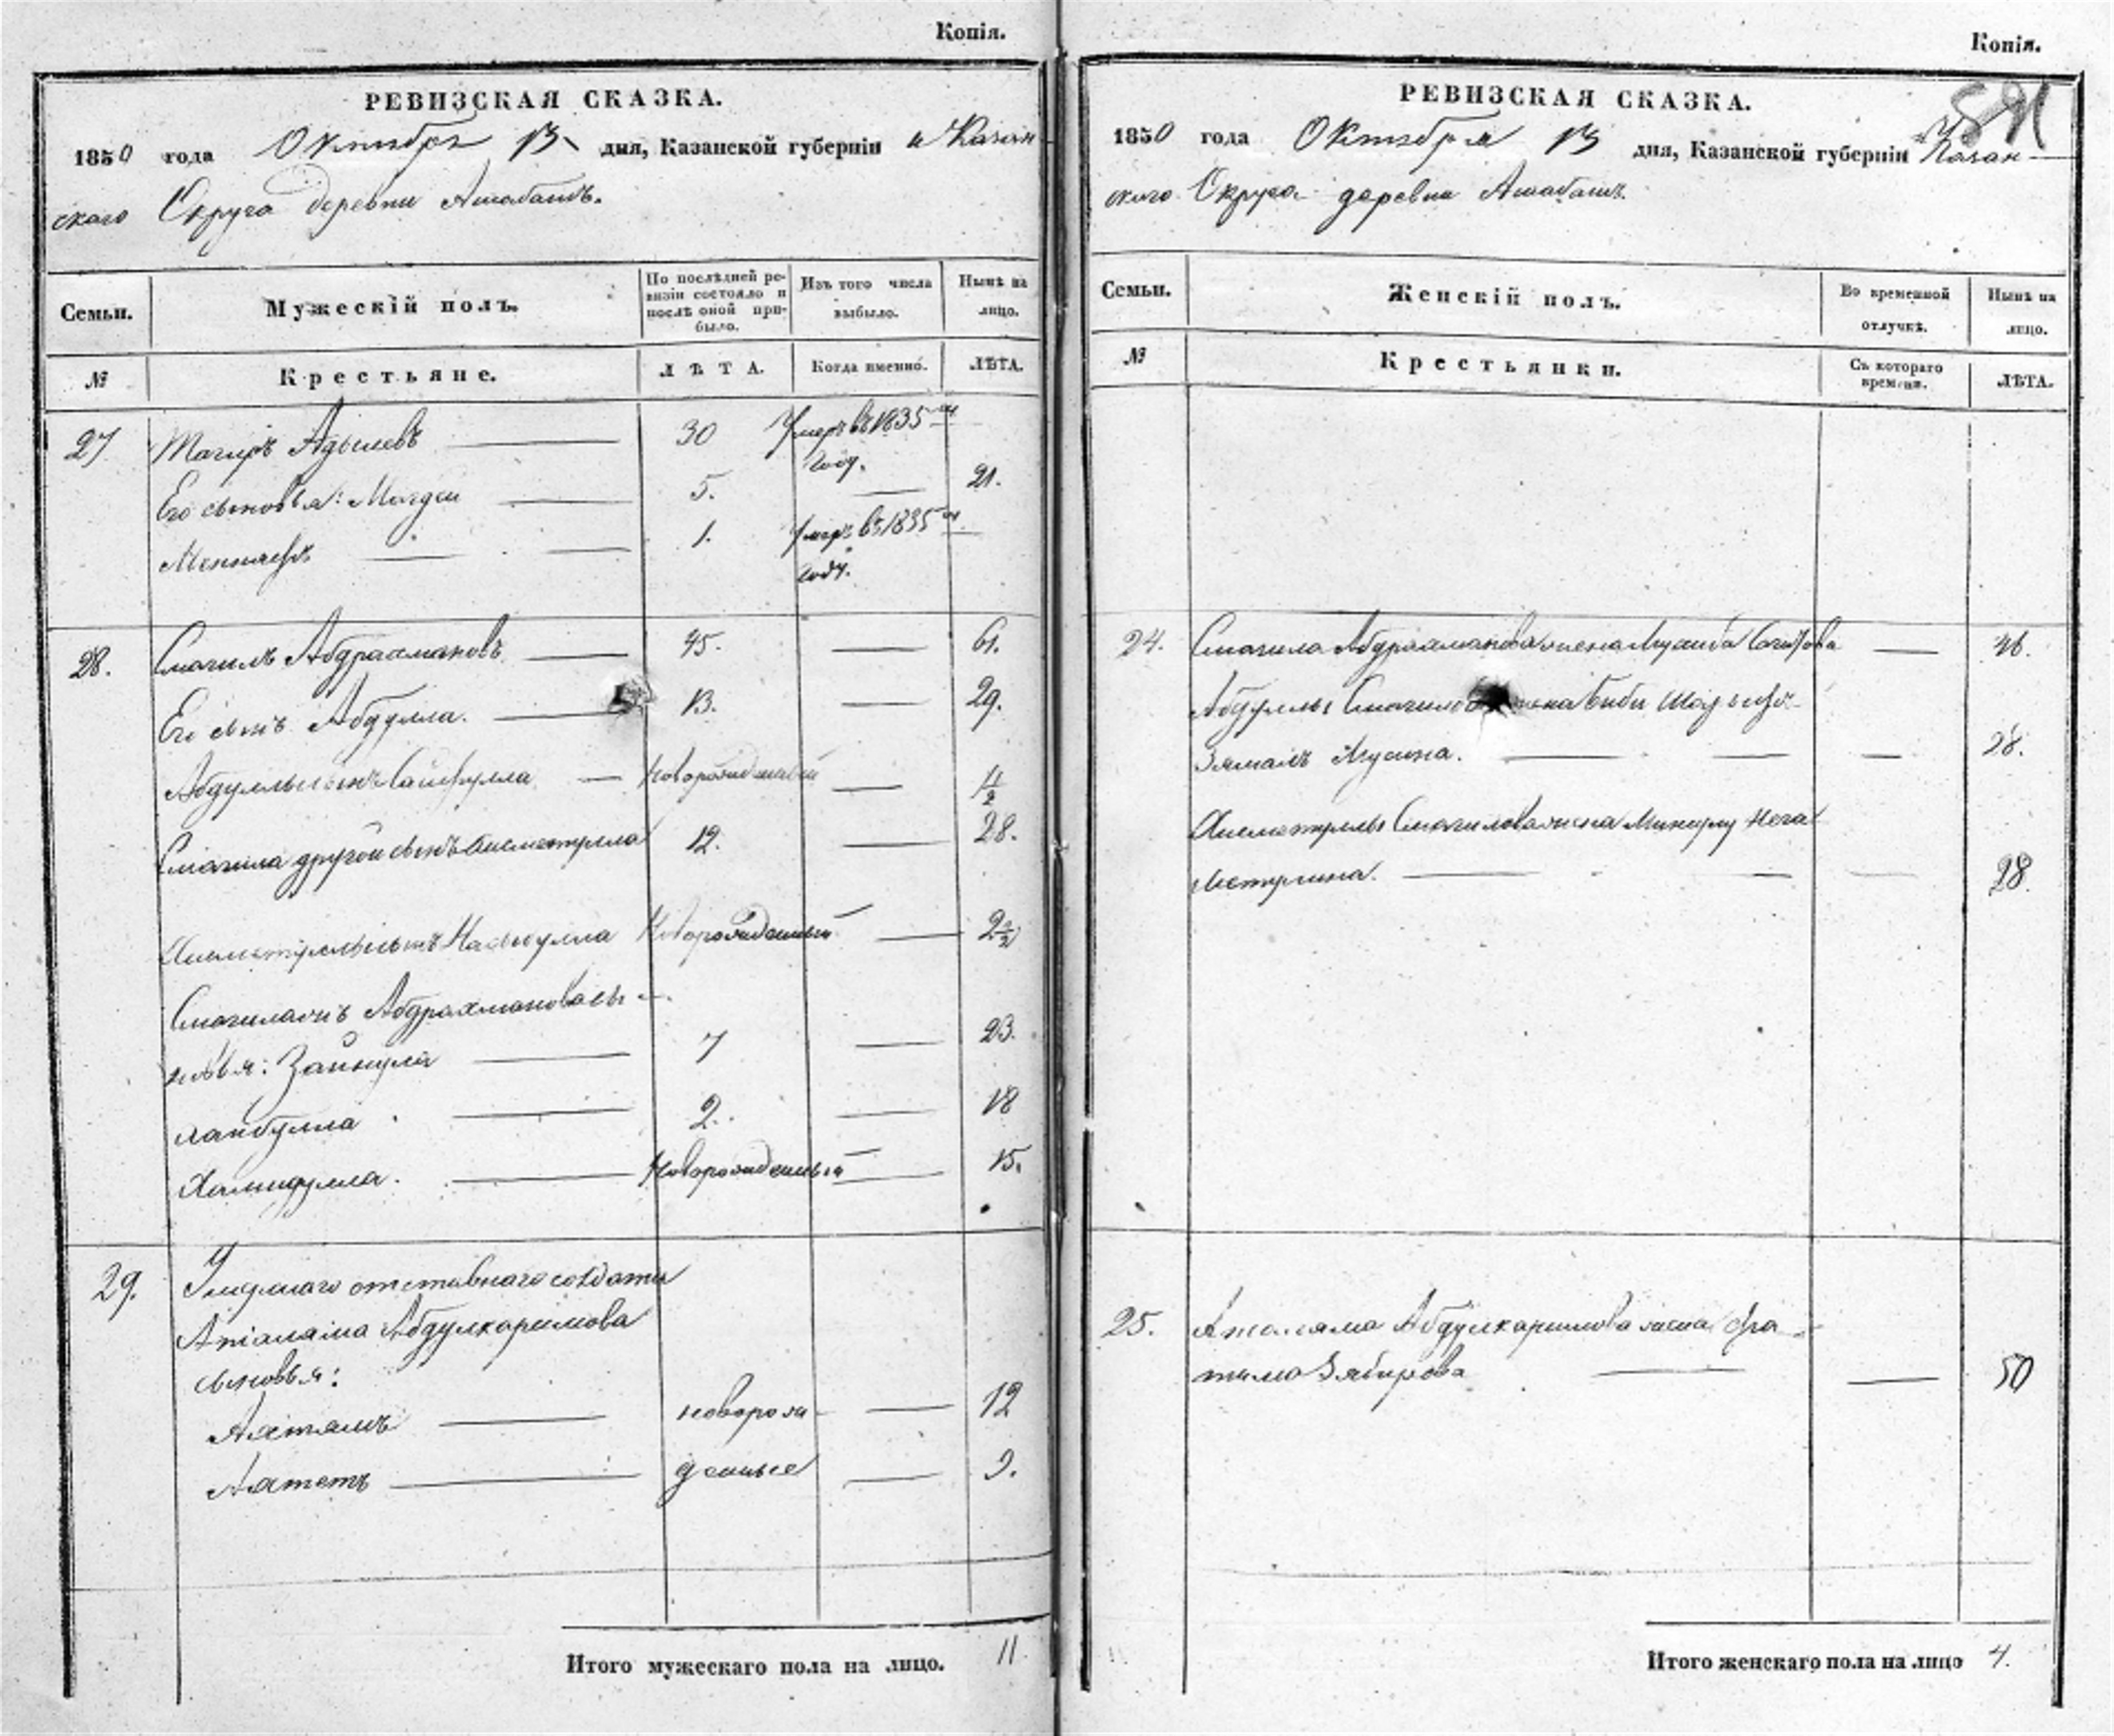 Копія.
РЕВИЗСКАЯ СКАЗКА.
1850 года Октября 13 дня, Казанской губерніи и Казан-
скаго Округа деревни Ашабашъ.
Семьи. Мужескій полъ. По послѣдней ре- Изъ того числа Нынѣ на
визіи состояло и
послѣ оной при- выбыло. лицо.
было.
№ Крестьяне. ЛѢТА. Когда именно. ЛѢТА.
27 Тагиръ Адылевъ 30 Умеръ въ 1835 м
году.
Его сыновья: Магди 5. 21.
1. Умеръ въ 1835 м
году.
28. Смагилъ Абдрахмановъ 45. 61.
Его сынъ Абдулла. 13. 29.
Абдуллы сынъ Сайфулла Новорожденный 1/2
Смагила другой сынъ 12. 28.
сынъ Новорожденный 2
Смагила Абдрахманова сы-
новья: Зайнулла 7 23.
2. 18
Хамидулла. Новорожденный 15.
29. отставнаго солдата
Абдулкаримова
сыновья:
Ахтямъ новорож- 12
Ахметъ денные 9.
Итого мужескаго пола на лицо. 11
Копія.
РЕВИЗСКАЯ СКАЗКА.
1850 года Октября 13 дня, Казанской губерніи и Казан-
скаго Округа деревни Ашабашъ.
Семьи. Женскій полъ. Во временной Нынѣ на
отлучкѣ. лицо.
№ Крестьянки. Съ котораго ЛѢТА.
времени.
24. Смагила Абдрахманова жена 46.
Абдуллы Смагилова жена Биби
Зямалъ Мусина. 28.
Смагилова жена
28.
25. Абдулкаримова жена Фа-
тима Зябирова 50
Итого женскаго пола на лицо 4.